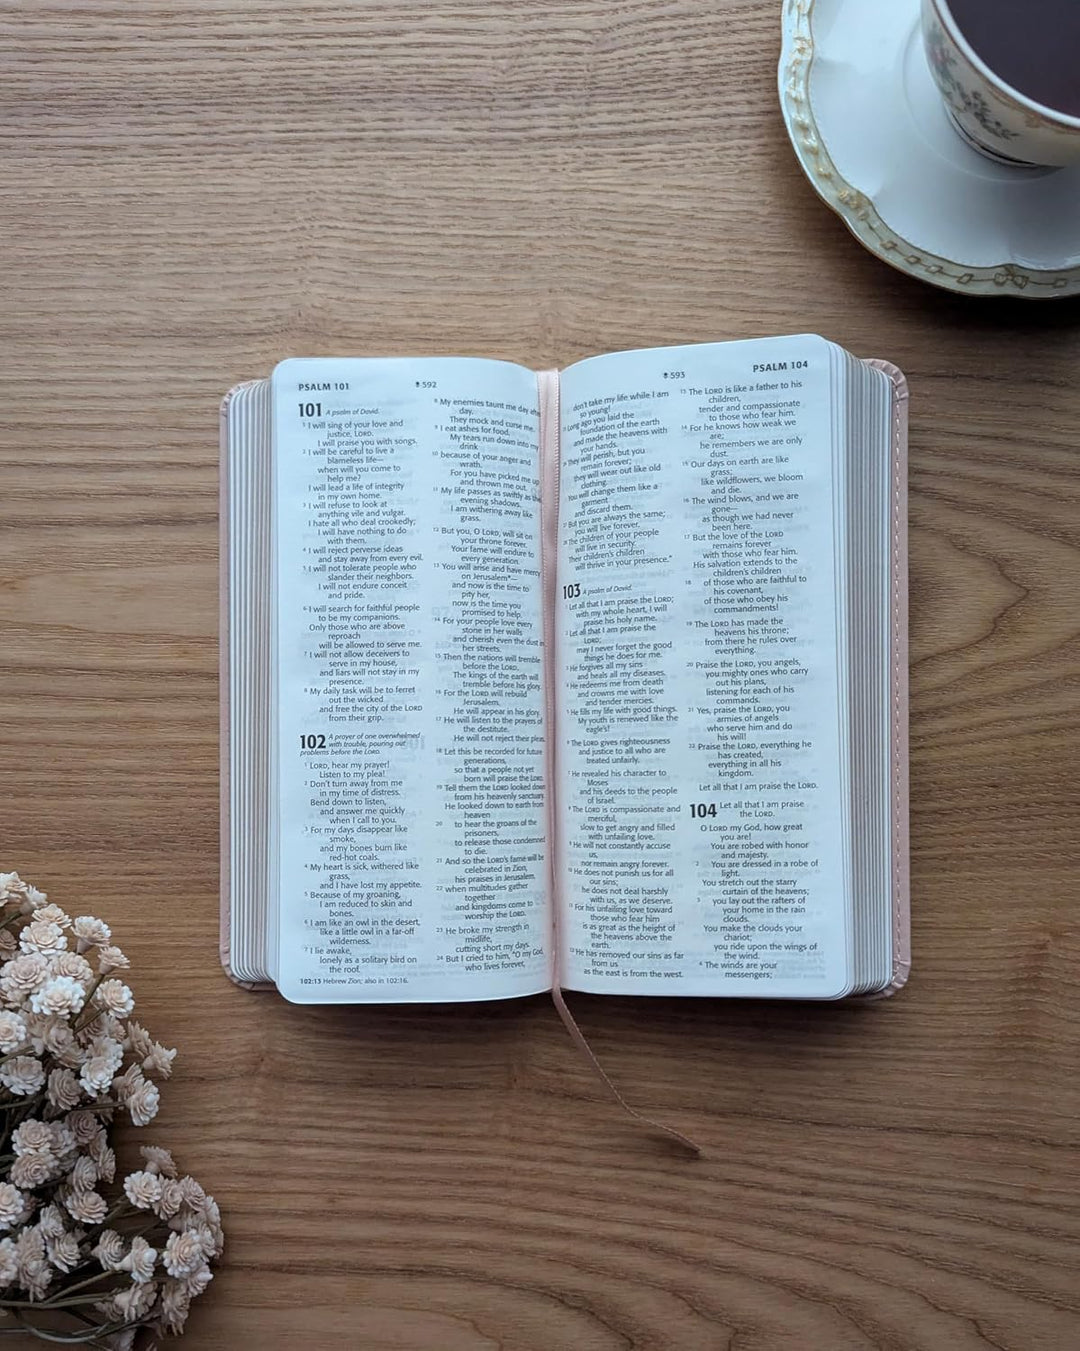 PSALM 101
592
101 A psalm of David.
1 I will sing of your love and
justice, LORD.
I will praise you with songs.
2 I will be careful to live a
blameless life—
when will you come to
help me?
I will lead a life of integrity
in my own home.
3 I will refuse to look at
anything vile and vulgar.
I hate all who deal crookedly;
I will have nothing to do
with them.
4 I will reject perverse ideas
and stay away from every evil.
5 I will not tolerate people who
slander their neighbors.
I will not endure conceit
and pride.
6 I will search for faithful people
to be my companions.
Only those who are above
reproach
will be allowed to serve me.
7 I will not allow deceivers to
serve in my house,
and liars will not stay in my
presence.
8 My daily task will be to ferret
out the wicked
and free the city of the LORD
from their grip.
102 A prayer of one overwhelmed
with trouble, pouring out
problems before the LORD.
1 LORD, hear my prayer!
Listen to my plea!
2 Don't turn away from me
in my time of distress.
Bend down to listen,
and answer me quickly
when I call to you.
3 For my days disappear like
smoke,
and my bones burn like
red-hot coals.
4 My heart is sick, withered like
grass,
and I have lost my appetite.
5 Because of my groaning,
I am reduced to skin and
bones.
6 I am like an owl in the desert,
like a little owl in a far-off
wilderness.
7 I lie awake,
lonely as a solitary bird on
the roof.
102:13 Hebrew Zion; also in 102:16.
8 My enemies taunt me day after
day.
They mock and curse me.
9 I eat ashes for food.
My tears run down into my
drink
10 because of your anger and
wrath.
For you have picked me up
and thrown me out.
11 My life passes as swiftly as the
evening shadows.
I am withering away like
grass.
12 But you, O LORD, will sit on
your throne forever.
Your fame will endure to
every generation.
13 You will arise and have mercy
on Jerusalem*—
and now is the time to
pity her,
now is the time you
promised to help.
14 For your people love every
stone in her walls
and cherish even the dust in
her streets.
15 Then the nations will tremble
before the LORD.
The kings of the earth will
tremble before his glory.
16 For the LORD will rebuild
Jerusalem.
He will appear in his glory.
17 He will listen to the prayers of
the destitute.
He will not reject their pleas.
18 Let this be recorded for future
generations,
so that a people not yet
born will praise the LORD.
19 Tell them the LORD looked down
from his heavenly sanctuary.
He looked down to earth from
heaven
20 to hear the groans of the
prisoners,
to release those condemned
to die.
21 And so the LORD's fame will be
celebrated in Zion,
his praises in Jerusalem,
22 when multitudes gather
together
and kingdoms come to
worship the LORD.
23 He broke my strength in
midlife,
cutting short my days.
24 But I cried to him, "O my God,
who lives forever,
593
PSALM 104
don't take my life while I am
so young!
25 Long ago you laid the
foundation of the earth
and made the heavens with
your hands.
26 They will perish, but you
remain forever;
they will wear out like old
clothing.
You will change them like a
garment
and discard them.
27 But you are always the same;
you will live forever.
28 The children of your people
will live in security.
Their children's children
will thrive in your presence."
103 A psalm of David.
1 Let all that I am praise the LORD;
with my whole heart, I will
praise his holy name.
2 Let all that I am praise the
LORD;
may I never forget the good
things he does for me.
3 He forgives all my sins
and heals all my diseases.
4 He redeems me from death
and crowns me with love
and tender mercies.
5 He fills my life with good things.
My youth is renewed like the
eagle's!
6 The LORD gives righteousness
and justice to all who are
treated unfairly.
7 He revealed his character to
Moses
and his deeds to the people
of Israel.
8 The LORD is compassionate and
merciful,
slow to get angry and filled
with unfailing love.
9 He will not constantly accuse
us,
nor remain angry forever.
10 He does not punish us for all
our sins;
he does not deal harshly
with us, as we deserve.
11 For his unfailing love toward
those who fear him
is as great as the height of
the heavens above the
earth.
12 He has removed our sins as far
from us
as the east is from the west.
13 The LORD is like a father to his
children,
tender and compassionate
to those who fear him.
14 For he knows how weak we
are;
he remembers we are only
dust.
15 Our days on earth are like
grass;
like wildflowers, we bloom
and die.
16 The wind blows, and we are
gone—
as though we had never
been here.
17 But the love of the LORD
remains forever
with those who fear him.
His salvation extends to the
children's children
18 of those who are faithful to
his covenant,
of those who obey his
commandments!
19 The LORD has made the
heavens his throne;
from there he rules over
everything.
20 Praise the LORD, you angels,
you mighty ones who carry
out his plans,
listening for each of his
commands.
21 Yes, praise the LORD, you
armies of angels
who serve him and do
his will!
22 Praise the LORD, everything he
has created,
everything in all his
kingdom.
Let all that I am praise the LORD.
104 Let all that I am praise
the LORD.
O LORD my God, how great
you are!
You are robed with honor
and majesty.
2 You are dressed in a robe of
light.
You stretch out the starry
curtain of the heavens;
3 you lay out the rafters of
your home in the rain
clouds.
You make the clouds your
chariot;
you ride upon the wings of
the wind.
4 The winds are your
messengers;